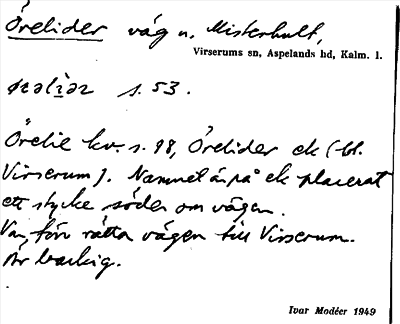 Örelider väg n. Misterhult,
Virserums sn, Aspelands hd, Kalm. l.
s. 53.
Örelie kv. s. 98, Örelider ek (bl.
Virserum). Namnet är på ek placerat
ett stycke söder om vägen.
Var förr rätta vägen till Virserum.
Är backig.
Ivar Modéer 1949